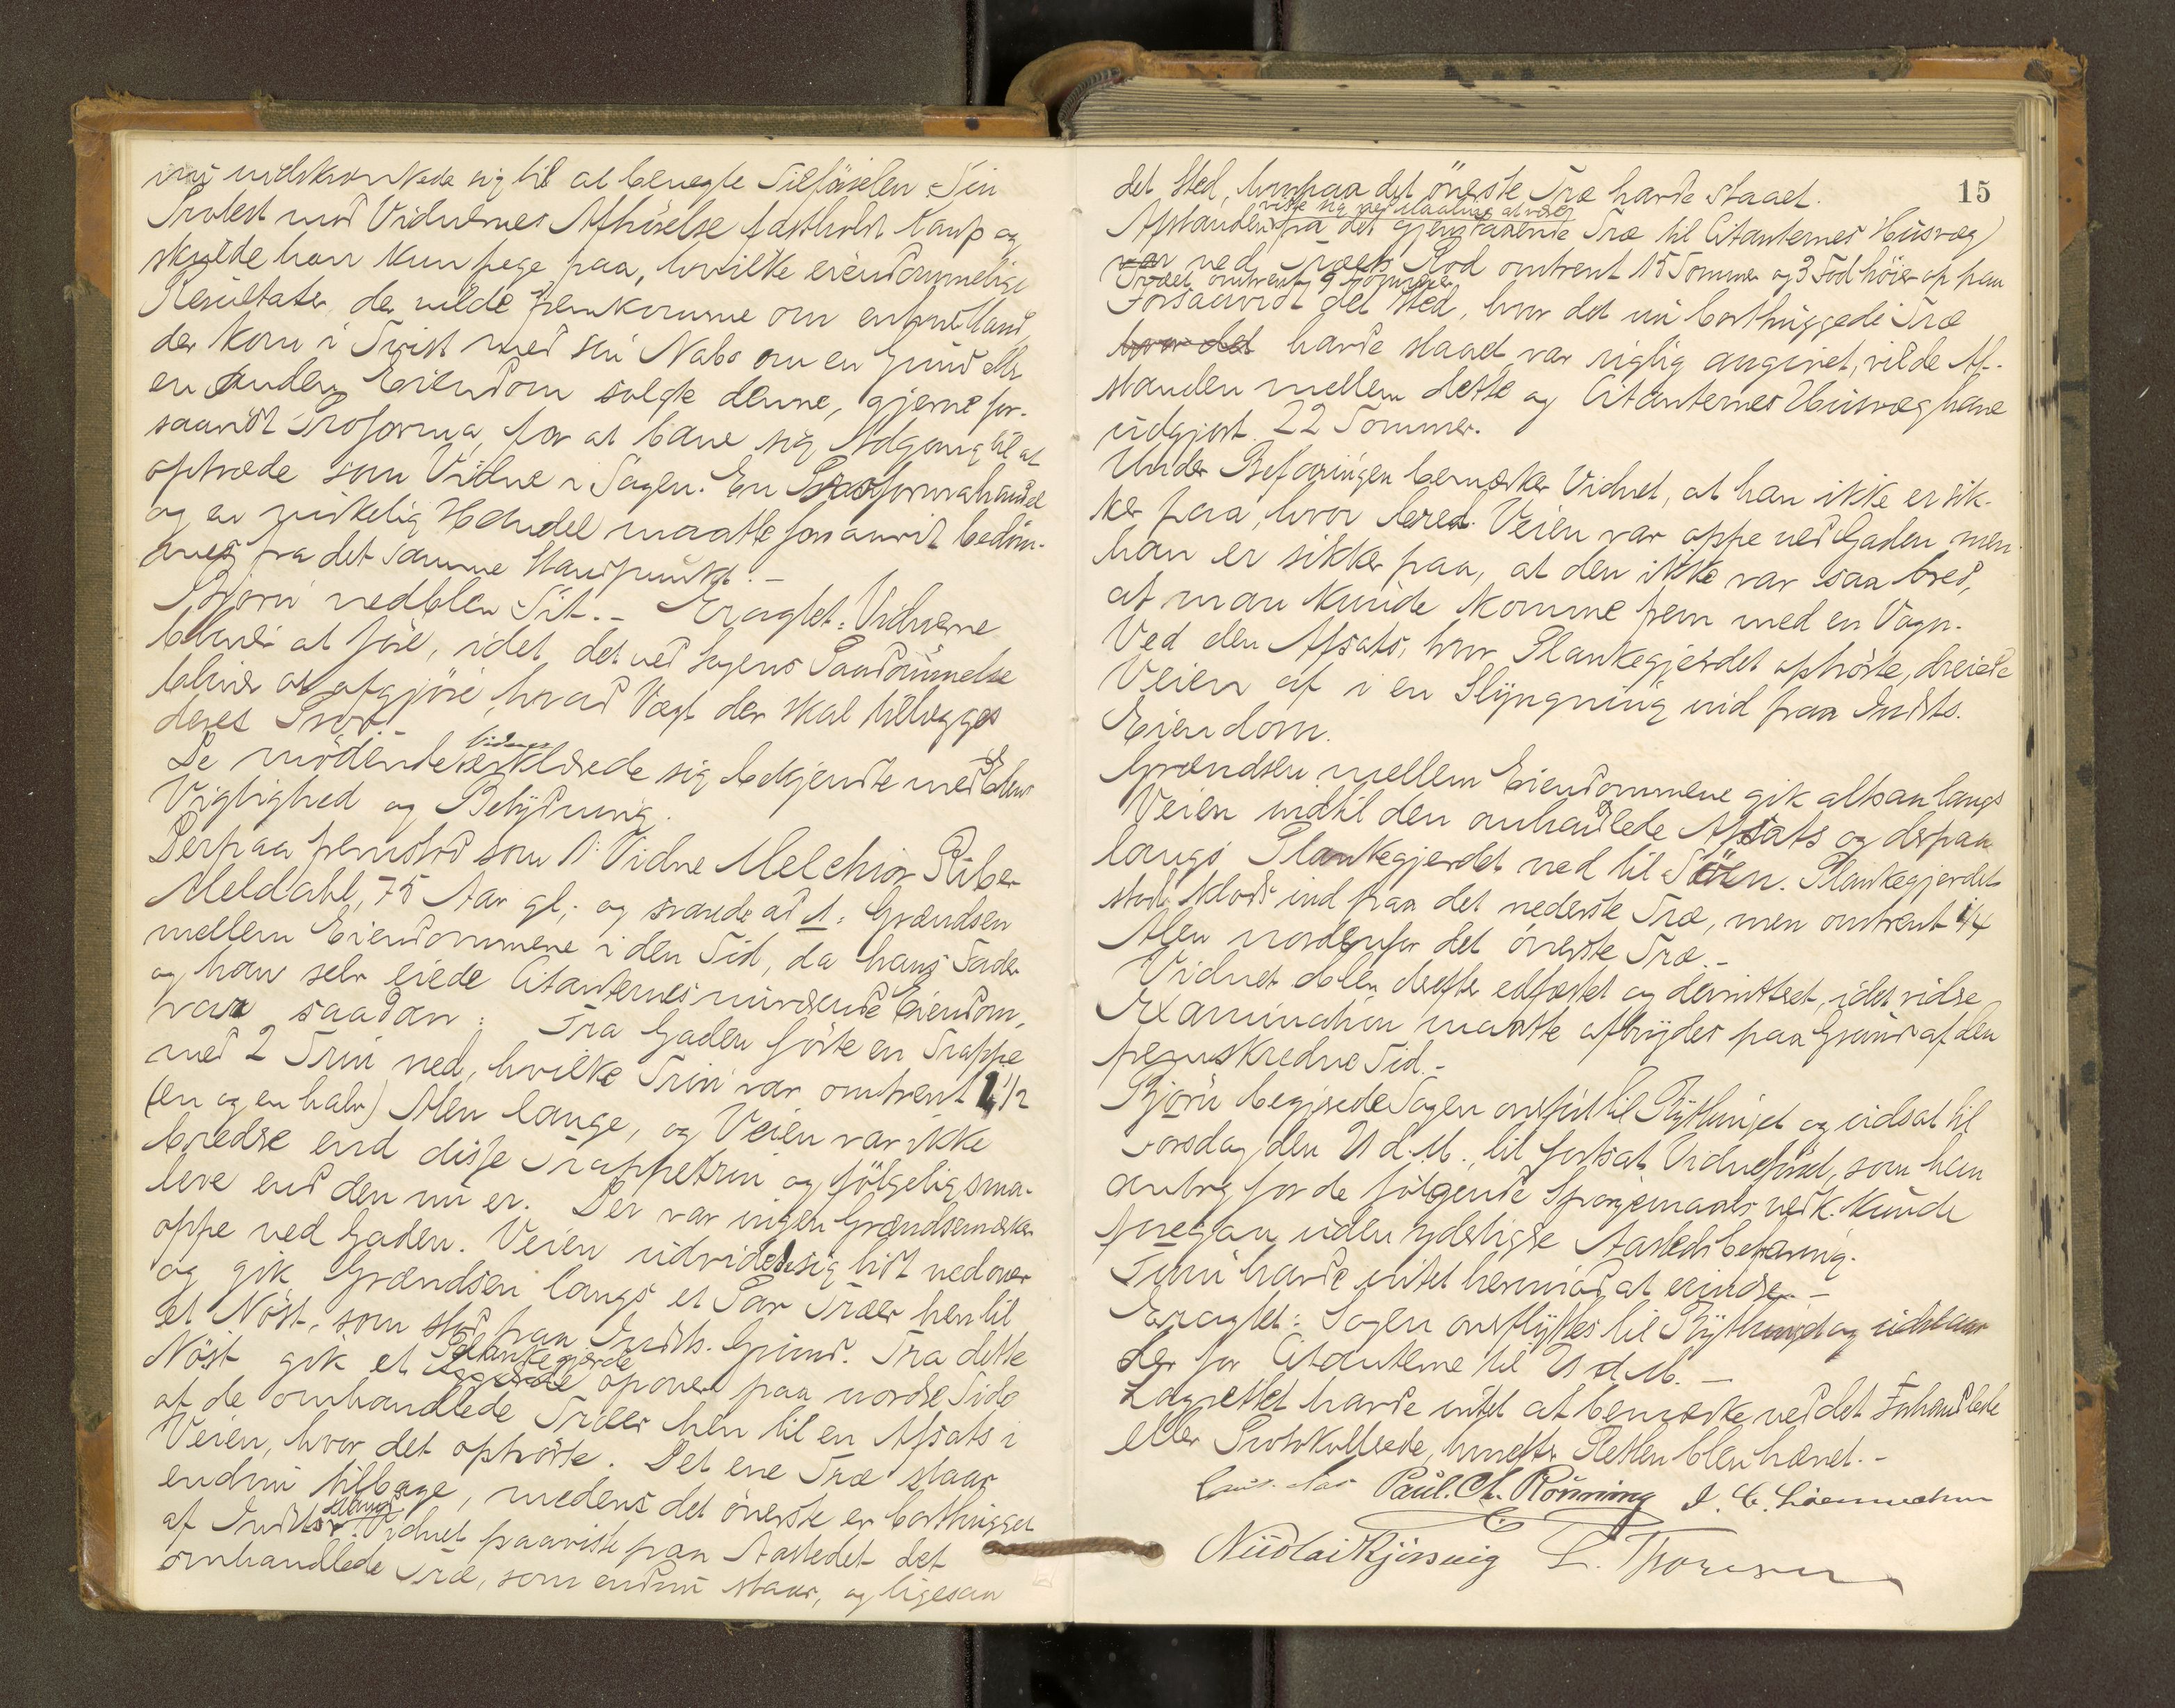 indskrænkede sig til at benegte Tilføielsen. Sin
Protest mod Vidnernes Afhørelse fastholdt Kamp og
skulde han kun pege paa, hvilke eiendommelige
Resultater der vilde fremkomme om enhver Mand,
der kom i Tvist med sin Nabo om en Grund eller
en anden Eiendom solgte denne, gjerne for-
saavidt Proforma, for at bane sig Adgang til at
optræde som Vidne i Sagen. En Proformahandel
og en virkelig Handel maatte forsaavidt bedøm-
mes fra det samme Standpunkt. –
Bjørn vedblev Sit. – Eragtet: Vidnerne
bliver at føre, idet det ved Sagens Paadømmelse
bliver at afgjøre, hvad Vægt der skal tillægges
deres Prov. –
De mødende Vidner erklærede sig bekjendte med Edens
Vigtighed og Betydning.
Derpaa fremstod som 1: Vidne Melchior Riber
Meldahl, 75 Aar gl.; og svarede ad 1: Grændsen
mellem Eiendommene i den Tid, da hans Fader
og han selv eiede Citanternes nuværende Eiendom,
var saadan: Fra Gaden førte en Trappe
med 2 Trin ned, hvilke Trin var omtrent 1 1/2
(en og en halv) Alen lange, og Veien var ikke
bredere end disse Trappetrin og følgelig sma-
lere end den nu er. Der var ingen Grændsemærker
oppe ved Gaden. Veien udvidede sig lidt nedover
og gik Grændsen langs et Par Træer hen til
et Nøst, som stod paa Indsts. Grund. Fra dette
Nøst gik et Plankegjerde opover paa nordre Side
af de omhandlede Træer hen til en Afsats i
Veien, hvor det ophørte. Det ene Træ staar
endnu tilbage, medens det øverste er borthugget
af Indstævnte. Vidnet paaviste paa Aastedet det
omhandlede Træ, som endnu staar, og ligesaa
15
det Sted, hvorpaa det øverste Træ havde staaet.
Afstanden viste sig ved Maaling at være fra det gjenstaaende Træ til Citanternes Husvæg
var ved Træets Rod omtrent 15 Tommer og 3 Fod høier op paa
Træet omtrent 9 Tommer
Forsaavidt det Sted, hvor det nu borthuggede Træ
hvor det havde staaet var rigtig angivet, vilde Af-
standen mellem dette og Citanternes Husvæg have
udgjort 22 Tommer.
Under Befaringen bemærker Vidnet, at han ikke er sik-
ker paa, hvor bred Veien var oppe ved Gaden, men
han er sikker paa, at den ikke var saa bred,
at man kunde komme frem med en Vogn.
Ved den Afsats, hvor Plankegjerdet ophørte, dreiede
Veien af i en Slyngning ind paa Indsts.
Eiendom.
Grændsen mellem Eiendommene gik altsaa langs
Veien indtil den omhandlede Afsats og derpaa
langs Plankegjerdet ned til Søen. Plankegjerdet
stod klods ind paa det nederste Træ, men omtrent 1/4
Alen nordenfor det øverste Træ. –
Vidnet blev derefter edfæstet og demitteret, idet videre
Examination maatte afbrydes paa Grund af den
fremskredne Tid. –
Bjørn begjærede Sagen overført til Bythinget og udsat til
Torsdag den 21 d. M., til fortsat Vidneførsel, som han
antog for de følgende Spørgemaals vedk. kunde
foregaa uden yderligere Aastedsbefaring.
havde intet herimod at erindre. –
Eragtet: Sagen overflyttes til Bythinget og udstaar
der for Citanterne til 21 d. M. –
Lagrettet havde intet at bemærke ved det Forhandlede
eller Protokollerede, hvorefter Retten blev hævet. –
Paul. A. Rönning
Nicolai Kjørsvig L. Thoresen